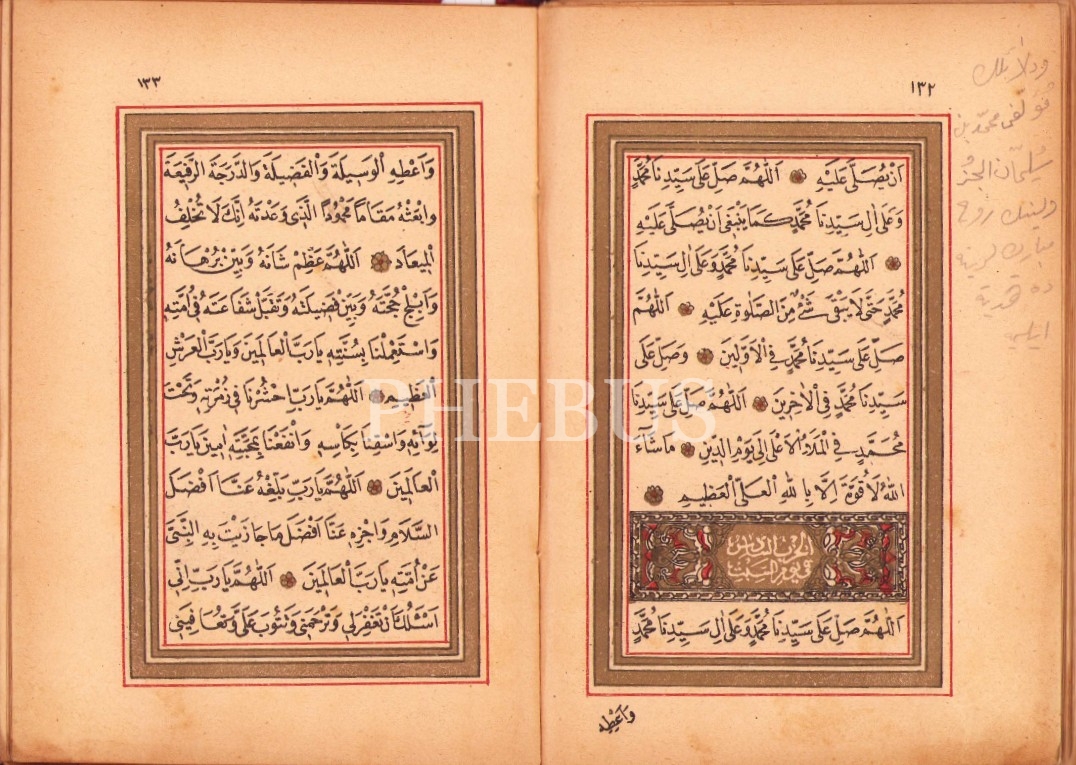 ١٣٢
اَنْ يُصَلّٰى عَلَيْهِ اَللّٰهُمَّ صَلِّ عَلٰى سَيِّدِنَا مُحَمَّدٍ
وَعَلٰى اٰلِ سَيِّدِنَا مُحَمَّدٍ كَمَا يَنْبَغٖى اَنْ يُصَلّٰى عَلَيْهِ
اَللّٰهُمَّ صَلِّ عَلٰى سَيِّدِنَا مُحَمَّدٍ وَعَلٰى اٰلِ سَيِّدِنَا
مُحَمَّدٍ حَتّٰى لَا يَبْقٰى شَئٌْ مِنَ الصَّلٰوةِ عَلَيْهِ اَللّٰهُمَّ
صَلِّ عَلٰى سَيِّدِنَا مُحَمَّدٍ فِى الْاَوَّلٖينَ وَصَلِّ عَلٰى
سَيِّدِنَا مُحَمَّدٍ فِى الْاٰخِرٖينَ اَللّٰهُمَّ صَلِّ عَلٰى سَيِّدِنَا
مُحَمَّدٍ فِى الْمَلَاِ الْاَعْلٰى اِلٰى يَوْمِ الدّٖينِ مَا شَاءَ
اللّٰهُ لَا قُوَّةَ اِلَّا بِاللّٰهِ الْعَلِىِّ الْعَظٖيمِ
الحزب السادس
فى يوم السبت
اَللّٰهُمَّ صَلِّ عَلٰى سَيِّدِنَا مُحَمَّدٍ وَعَلٰى اٰلِ سَيِّدِنَا مُحَمَّدٍ
وَاَعْطِهِ
محمد بن
سليمان
مبارك
هدية
١٣٣
وَاَعْطِهِ الْوَسٖيلَةَ وَالْفَضٖيلَةَ وَالدَّرَجَةَ الرَّفٖيعَةَ
وَابْعَثْهُ مَقَامًا مَحْمُودًا الَّذٖى وَعَدْتَهُ اِنَّكَ لَا تُخْلِفُ
الْمٖيعَادَ اَللّٰهُمَّ عَظِّمْ شَانَهُ وَبَيِّنْ بُرْهَانَهُ
وَاَبْلِجْ حُجَّتَهُ وَبَيِّنْ فَضٖيلَتَهُ وَتَقَبَّلْ شَفَاعَتَهُ فٖى اُمَّتِهِ
وَاسْتَعْمِلْنَا بِسُنَّتِهِ يَا رَبَّ الْعَالَمٖينَ وَيَا رَبَّ الْعَرْشِ
الْعَظٖيمِ اَللّٰهُمَّ يَا رَبِّ احْشُرْنَا فٖى زُمْرَتِهِ وَتَحْتَ
لِوَائِهِ وَاسْقِنَا بِكَاْسِهِ وَانْفَعْنَا بِمَحَبَّتِهِ اٰمٖينَ يَا رَبَّ
الْعَالَمٖينَ اَللّٰهُمَّ يَا رَبِّ بَلِّغْهُ عَنَّا اَفْضَلَ
السَّلَامِ وَاجْزِهِ عَنَّا اَفْضَلَ مَا جَازَيْتَ بِهِ النَّبِىَّ
عَنْ اُمَّتِهِ يَا رَبَّ الْعَالَمٖينَ اَللّٰهُمَّ يَا رَبِّ اِنّٖى
اَسْئَلُكَ اَنْ تَغْفِرَلٖى وَتَرْحَمَنٖى وَتَتُوبَ عَلَىَّ وَتُعَافِيَنٖى
PHEBUS